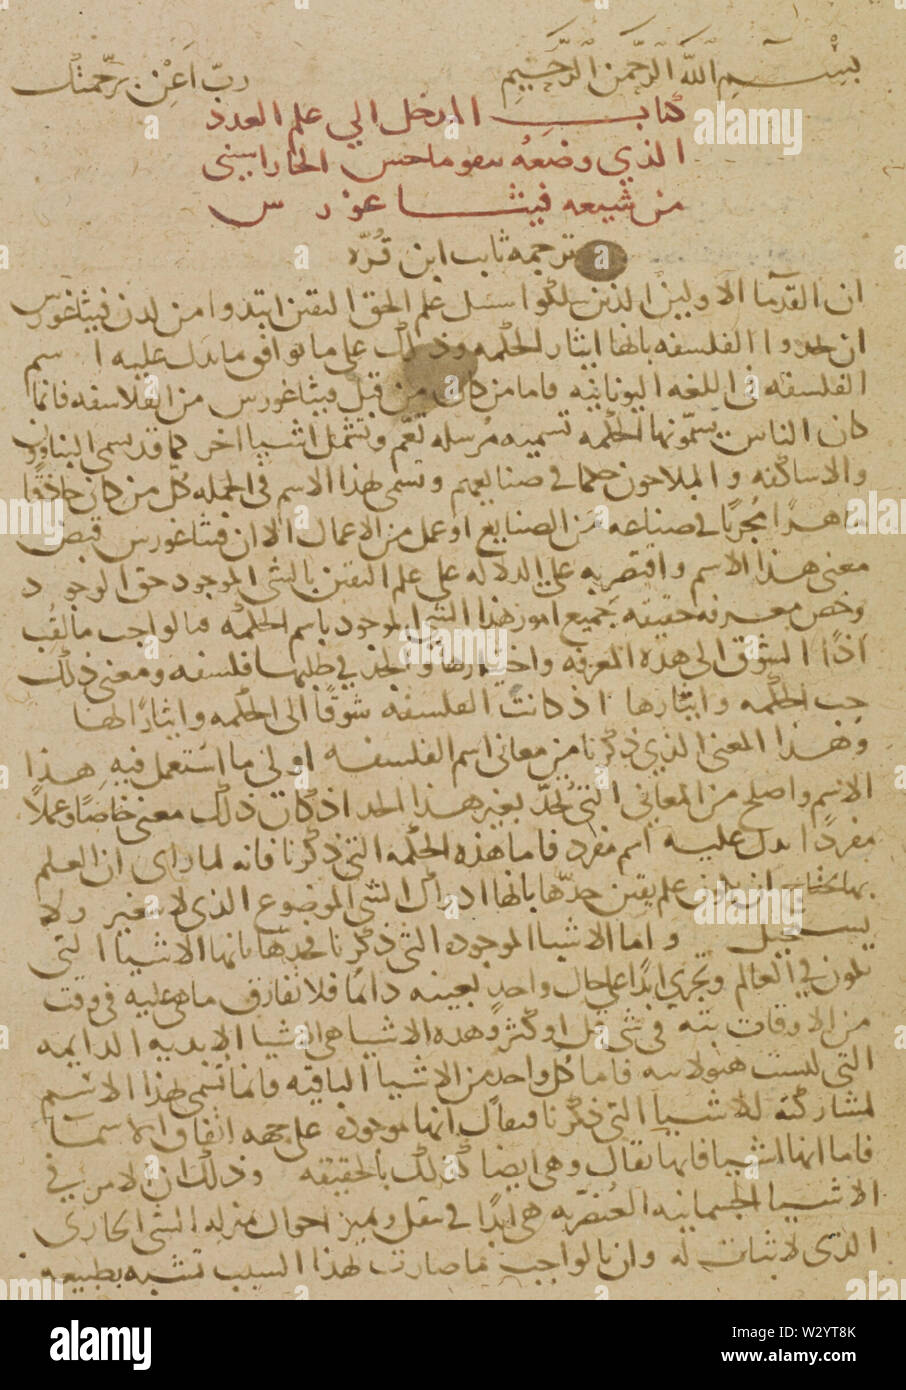 بسم الله الرحمن الرحيم رب اعن برحمتك
كتاب المدخل الي علم العدد
الذي وضعه نيقوماخس الجاراسيني
من شيعه فيثاغورس
ترجمه ثابت ابن قره
ان القدما الاولين الذين سلكوا سبل علم الحق اليقين ابتدوا من لدن فيثاغورس
ان حدوا الفلسفه بانها ايثار الحكمه وذلك على ما يوافق ما يدل عليه اسم
الفلسفه في اللغه اليونانيه فاما من كان من قبل فيثاغورس من الفلاسفه فانما
كان الناس يسمونها الحكمه تسميه مرسله تعم وتشمل اشيا اخر كما قد يسمى البناون
والاساكفه والملاحون حكما في صنايعهم وتسمى بهذا الاسم في الجمله كل من كان حاذقا
ماهرا مجربا في صناعه من الصنايع او عمل من الاعمال الا ان فيثاغورس قبض
معنى هذا الاسم واقتصر به على الدلاله على علم اليقين بالشي الموجود حق الوجود
وخص معرفه حقيقه جميع امور هذا الشي الموجود باسم الحكمه فبالواجب ما لقب
اذا الشوق الى هذه المعرفه في طلبها فلسفه ومعنى ذلك
حب الحكمه وايثارها اذ كانت الفلسفه شوقا الى الحكمه وايثارا لها
وهذا المعنى الذي ذكرنا من معاني اسم الفلسفه اولى ما استعمل فيه هذا
الاسم واصلح من المعاني التي تحد بغير هذا الحد اذ كان ذلك معنى خاصا وعملا
مفردا يدل عليه اسم مفرد فاما هذه الحكمه التي ذكرنا فانه لما راى ان العلم
بها ان يكون علم يقين حدها بانها ادراك الشي الموضوع الذي لا يتغير ولا
يستحيل واما الاشيا الموجوده التي ذكرنا فحدها بانها الاشيا التي
تكون في العالم وتجري ابدا على حال واحد بعينه دائما فلا تفارق ما هي عليه في وقت
من الاوقات بته في شي قل او كثر وهذه الاشيا هي الاشيا الابديه الدايمه
التي ليست هيولانيه فاما كل واحد من الاشيا الباقيه فانما تسمى بهذا الاسم
لمشاركته للاشيا التي ذكرنا فيقال انها موجوده على جهه اتفاق الاسما
فاما انها اشيا فانها تقال وهي ايضا كذلك بالحقيقه وذلك ان الامر في
الاشيا الجسمانيه العنصريه هي ابدا في تنقل وتميز احوال منزله الشي الجاري
الذي لا ثبات له وان بالواجب ما صارت لهذا السبب تشبه بطبيعه
alamy
W2YT8K
www.alamy.com